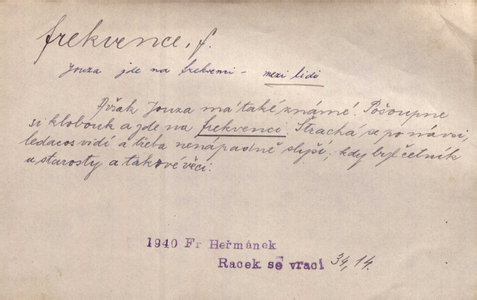 frekvence, f.
Jouza jde na frekvenci - mezi lidi
Avšak Jouza má také známé. Pošoupne
si klobouk a jde na frekvenci. Strachá se po návsi,
ledacos vidí a třeba nenápadně slyší, kdy byl četník
u starosty a takové věci.
1940 Fr Heřmánek
Racek se vrací 34, 14.